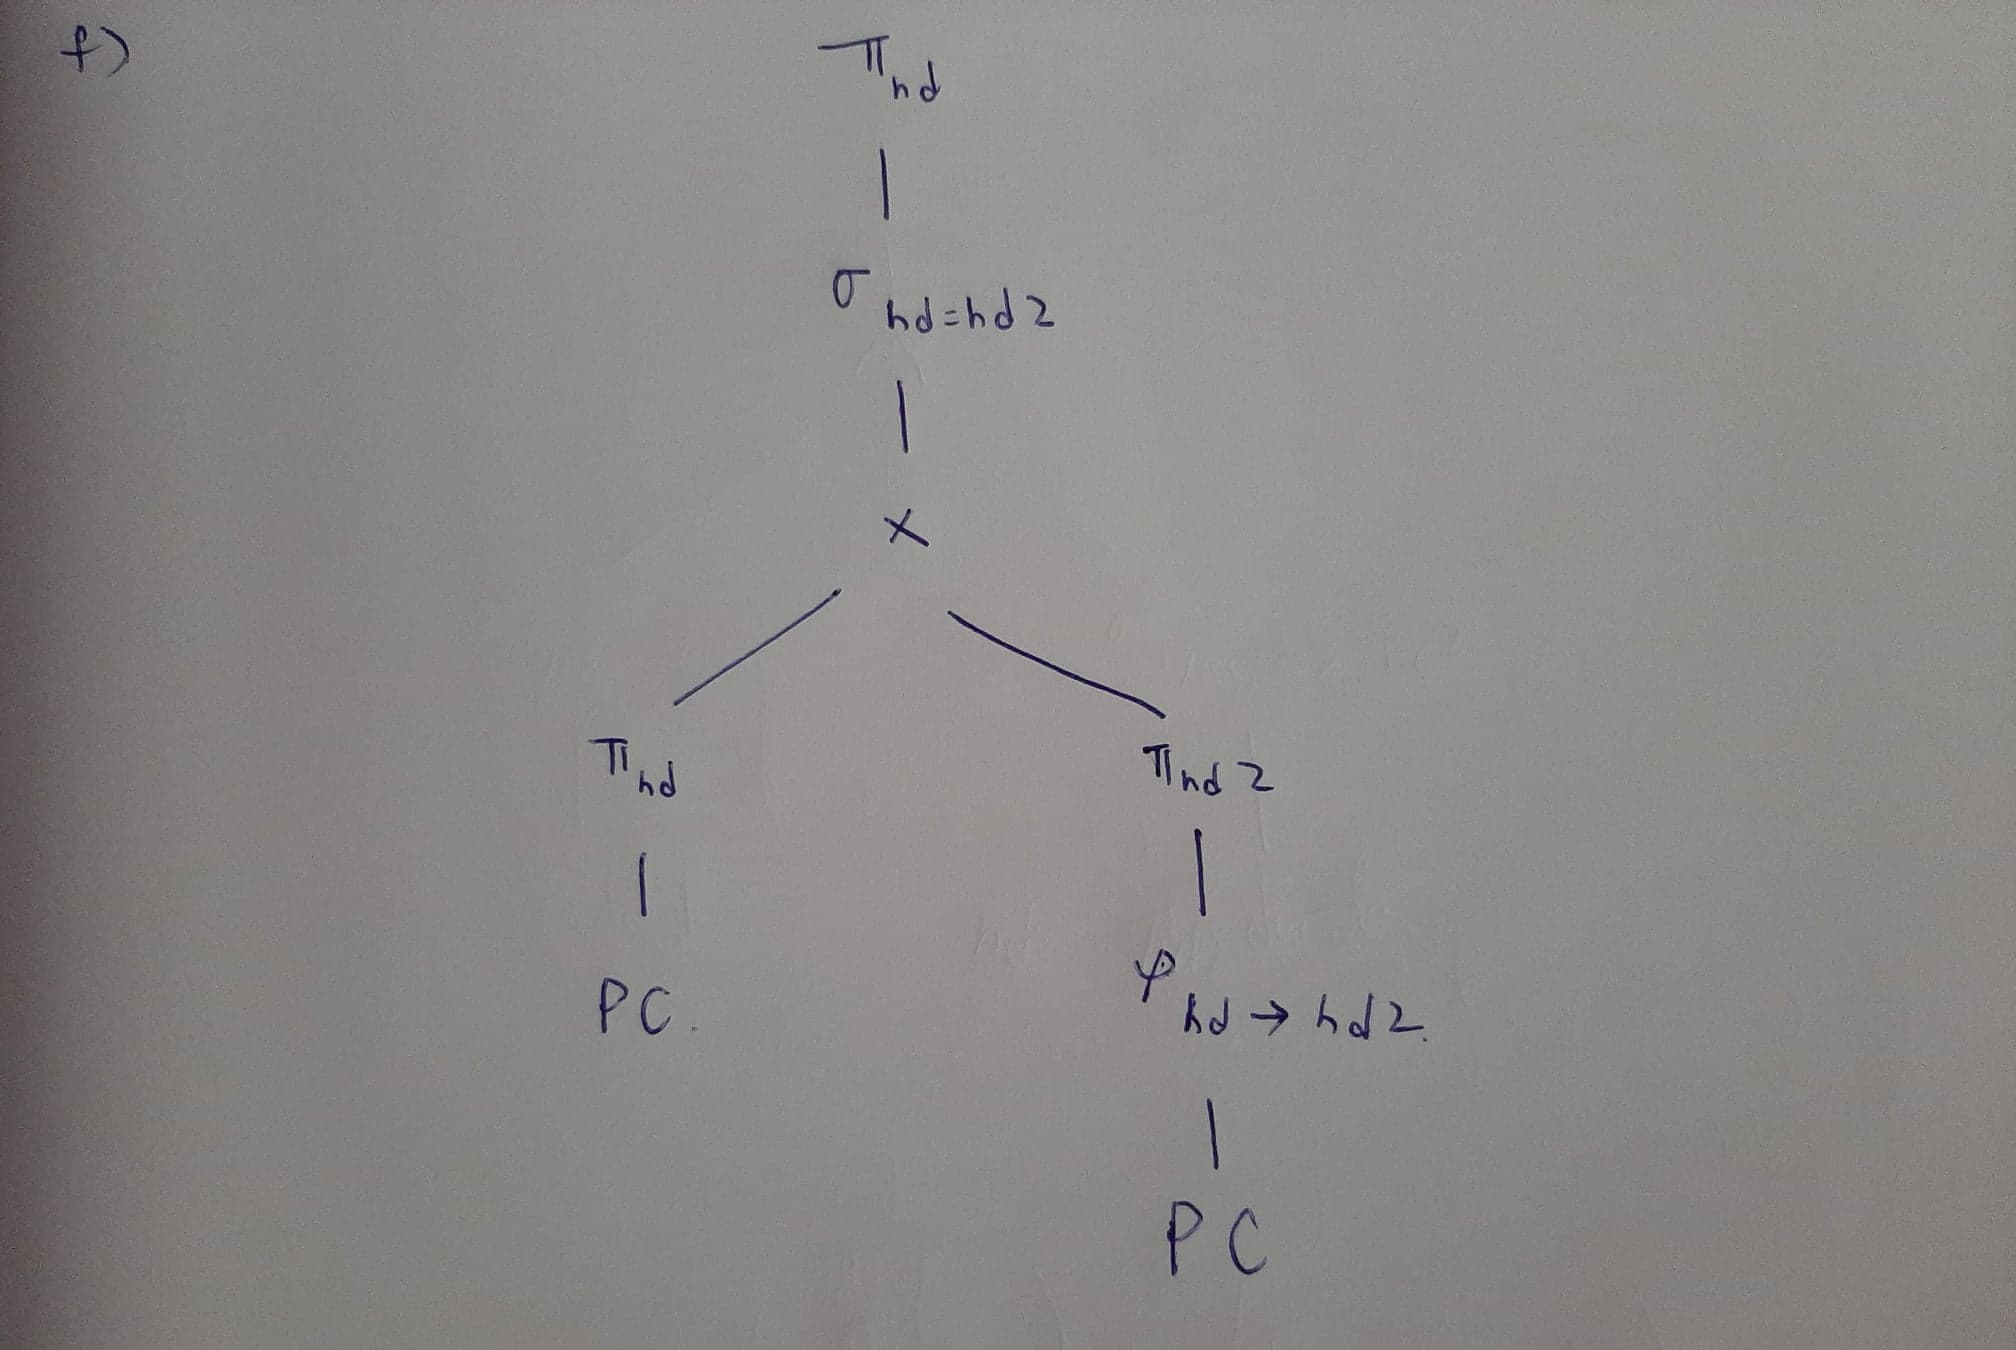 f)
π hd
σ hd=hd2
×
π hd π hd2
PC. φ hd → hd2.
PC